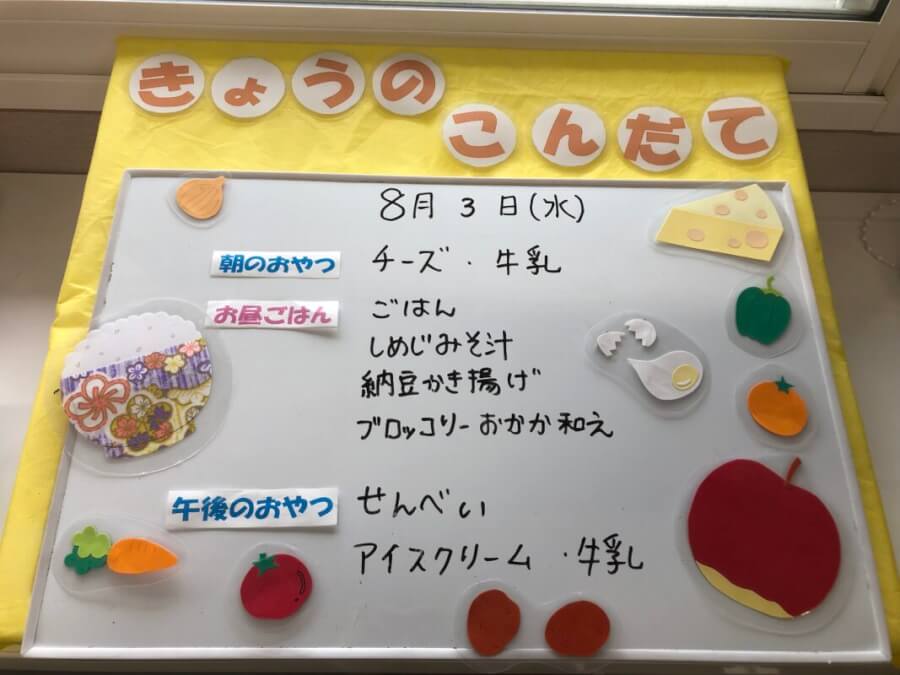 きょうの
こんだて
8月 3 日(水)
朝のおやつ チーズ・牛乳
お昼ごはん ごはん
しめじみそ汁
納豆かき揚げ
ブロッコリーおかか和え
午後のおやつ せんべい
アイスクリーム・牛乳